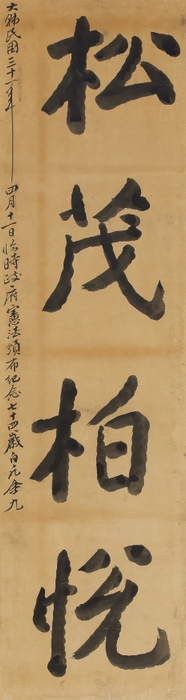 松茂柏悅
大韓民國三十一年四月十一日臨時政府憲法頒布紀念七十四歲白凡金九